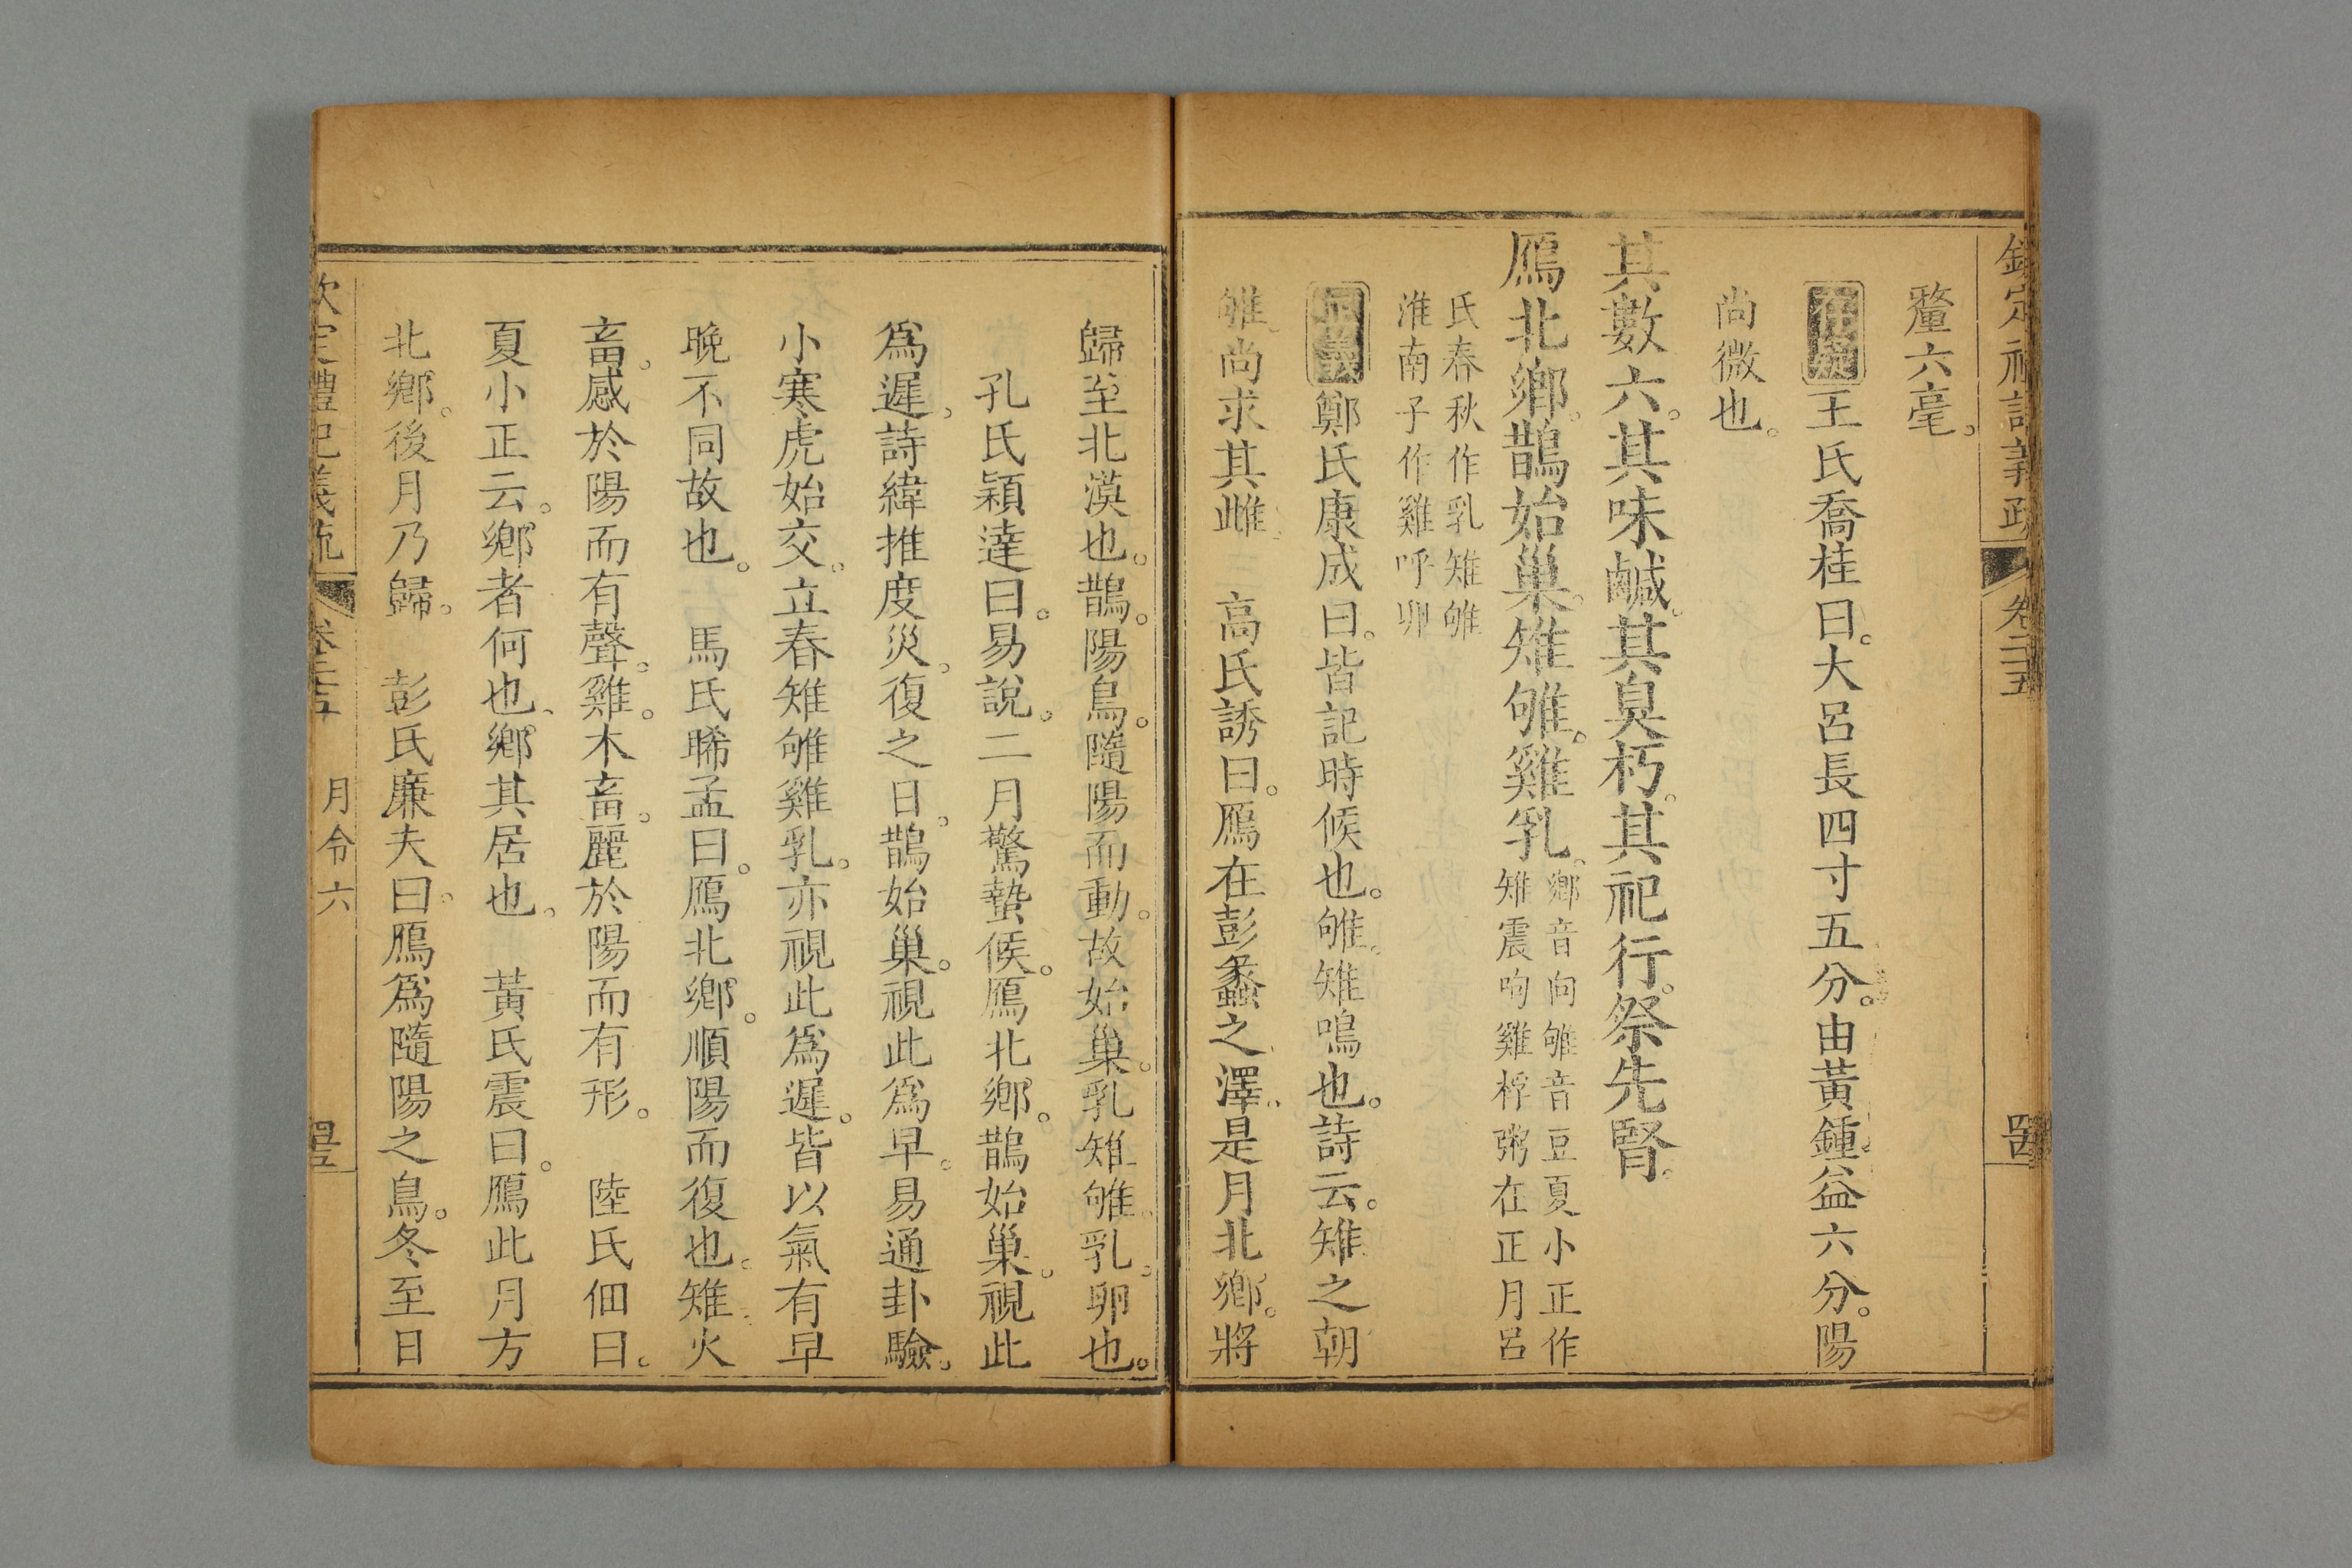 欽定禮記義疏 卷二十五
釐六毫。
存疑王氏喬桂曰。大呂長四寸五分。由黃鍾益六分。陽
尚微也。
其數六。其味鹹。其臭朽。其祀行。祭先腎。
鴈北鄉。鵲始巢。雉雊。雞乳。
鄉音向雊音豆夏小正作
雉震呴雞桴粥在正月呂
氏春秋作乳雉雊
淮南子作雞呼卵
正義鄭氏康成曰。皆記時候也。雊。雉鳴也。詩云。雉之朝
雊。尚求其雌。 高氏誘曰。鴈在彭蠡之澤。是月北鄉。將
歸至北漠也。鵲。陽鳥。隨陽而動。故始巢。乳雉雊。乳。卵也。
孔氏穎達曰。易說。二月驚蟄候。鴈北鄉。鵲始巢。視此
爲遲。詩緯推度災。復之日。鵲始巢。視此爲早。易通卦驗。
小寒虎始交。立春雉雊雞乳。亦視此爲遲。皆以氣有早
晚不同故也。 馬氏睎孟曰。鴈北鄉。順陽而復也。雉火
畜。感於陽而有聲。雞。木畜。麗於陽而有形。 陸氏佃曰。
夏小正云。鄉者何也、鄉其居也。 黃氏震曰。鴈此月方
北鄉。後月乃歸。 彭氏廉夫曰。鴈爲隨陽之鳥。冬至日
欽定禮記義疏 卷二十五 月令六